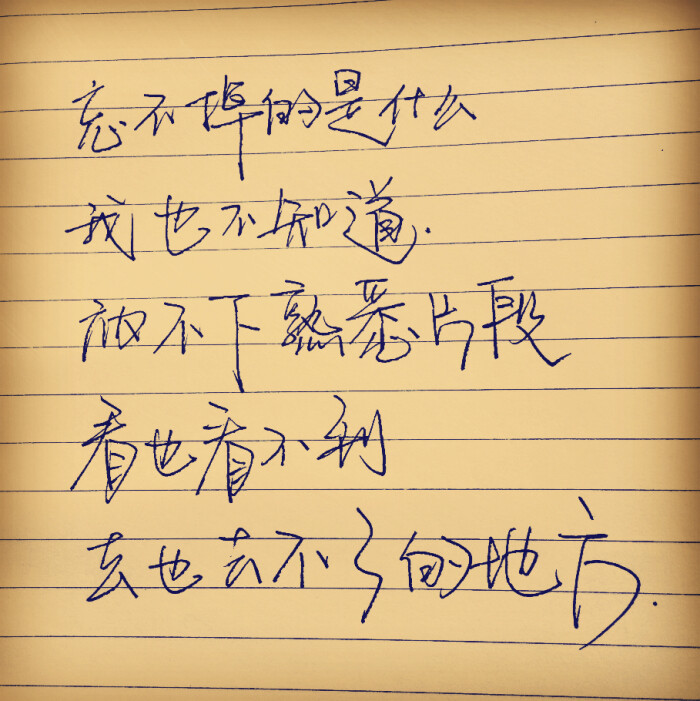 忘不掉的是什么
我也不知道.
放不下熟悉片段
看也看不到
去也去不了的地方.